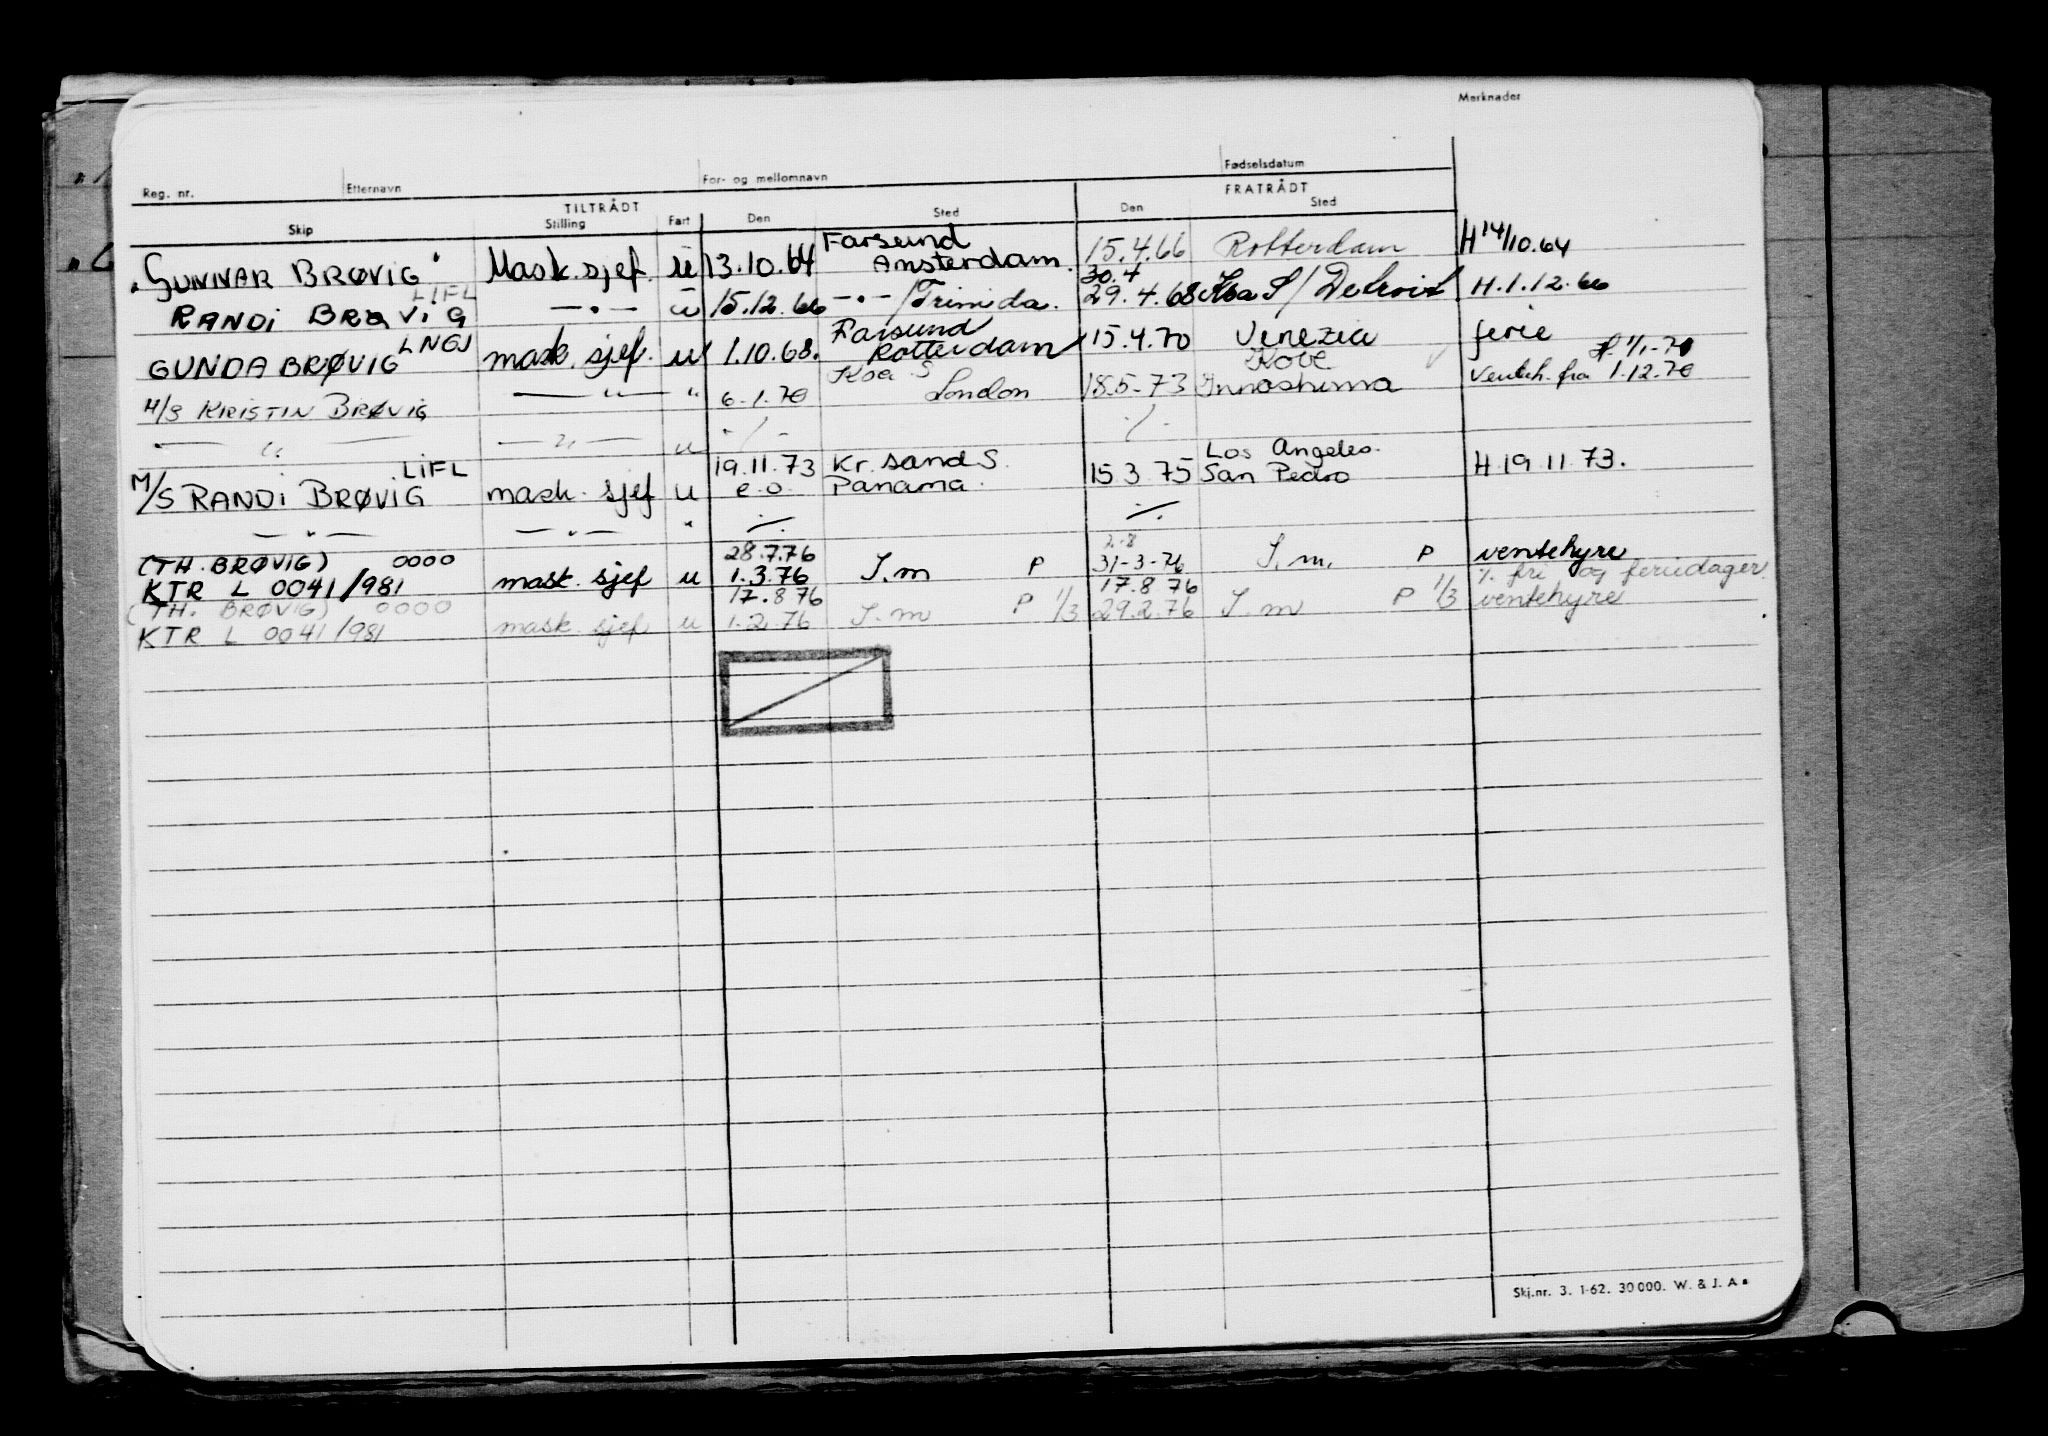 Merknader
Reg. nr. Etternavn For- og mellomnavn Fødselsdatum
TILTRÅDT FRATRÅDT
Skip Stilling Fart Den Sted Den Sted
"GUNNAR BRØVIG" Mask. sjef. u 13.10.64 Farsund Amsterdam. 15.4.66 Rotterdam H 14/10.64
RANDI BRØVIG LIFL —"— u 15.12.66 —"—/Trinida. 30.4 29.4.68 Koa S/Detroit H.1.12.66
GUNDA BRØVIG LNGJ mask. sjef. u 1.10.68. Farsund Rotterdam 15.4.70 Venezia ferie
M/S KRISTIN BRØVIG —"— " 6.1.70 Koa S London 18.5-73 Kobe Innoshima H. 1/1-70 Venteh. fra 1.12.70
—"— —"— u -/- -/-
M/S RANDI BRØVIG LIFL mask. sjef u 19.11.73 e.o. Kr. sand S. Panama. 15.3.75 Los Angeles. San Pedro H.19.11.73.
—"— —"— " ./. ./.
(TH. BRØVIG) 0000 28.7.76 2-8
KTR L 0041/981 mask. sjef u 1.3.76 S.m P 31-3-76 S.m. P ventehyre
(TH. BRØVIG) 0000 17.8 76 17.8 76 % fri og feriedager.
KTR L 0041/981 mask. sjef u 1.2.76 S.m P 1/3 29.2.76 S.m P 1/3 ventehyre
Skj.nr. 3. 1-62. 30 000. W. & J. A.